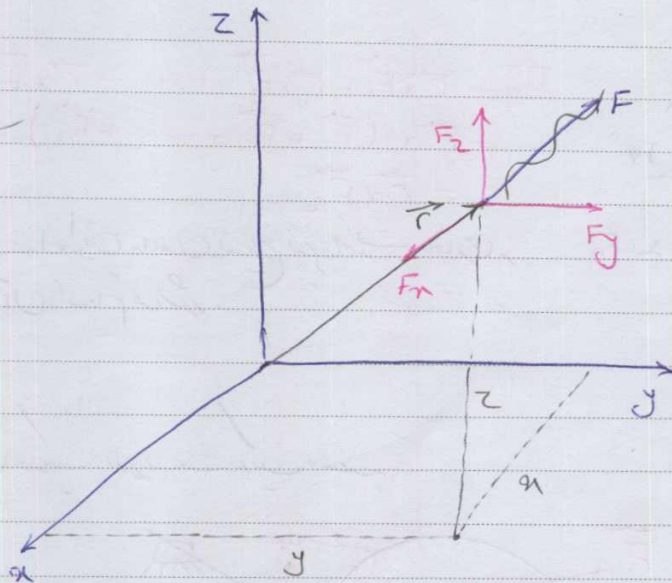 z
F
Fz
r
Fy
Fx
z
y
x
y
x